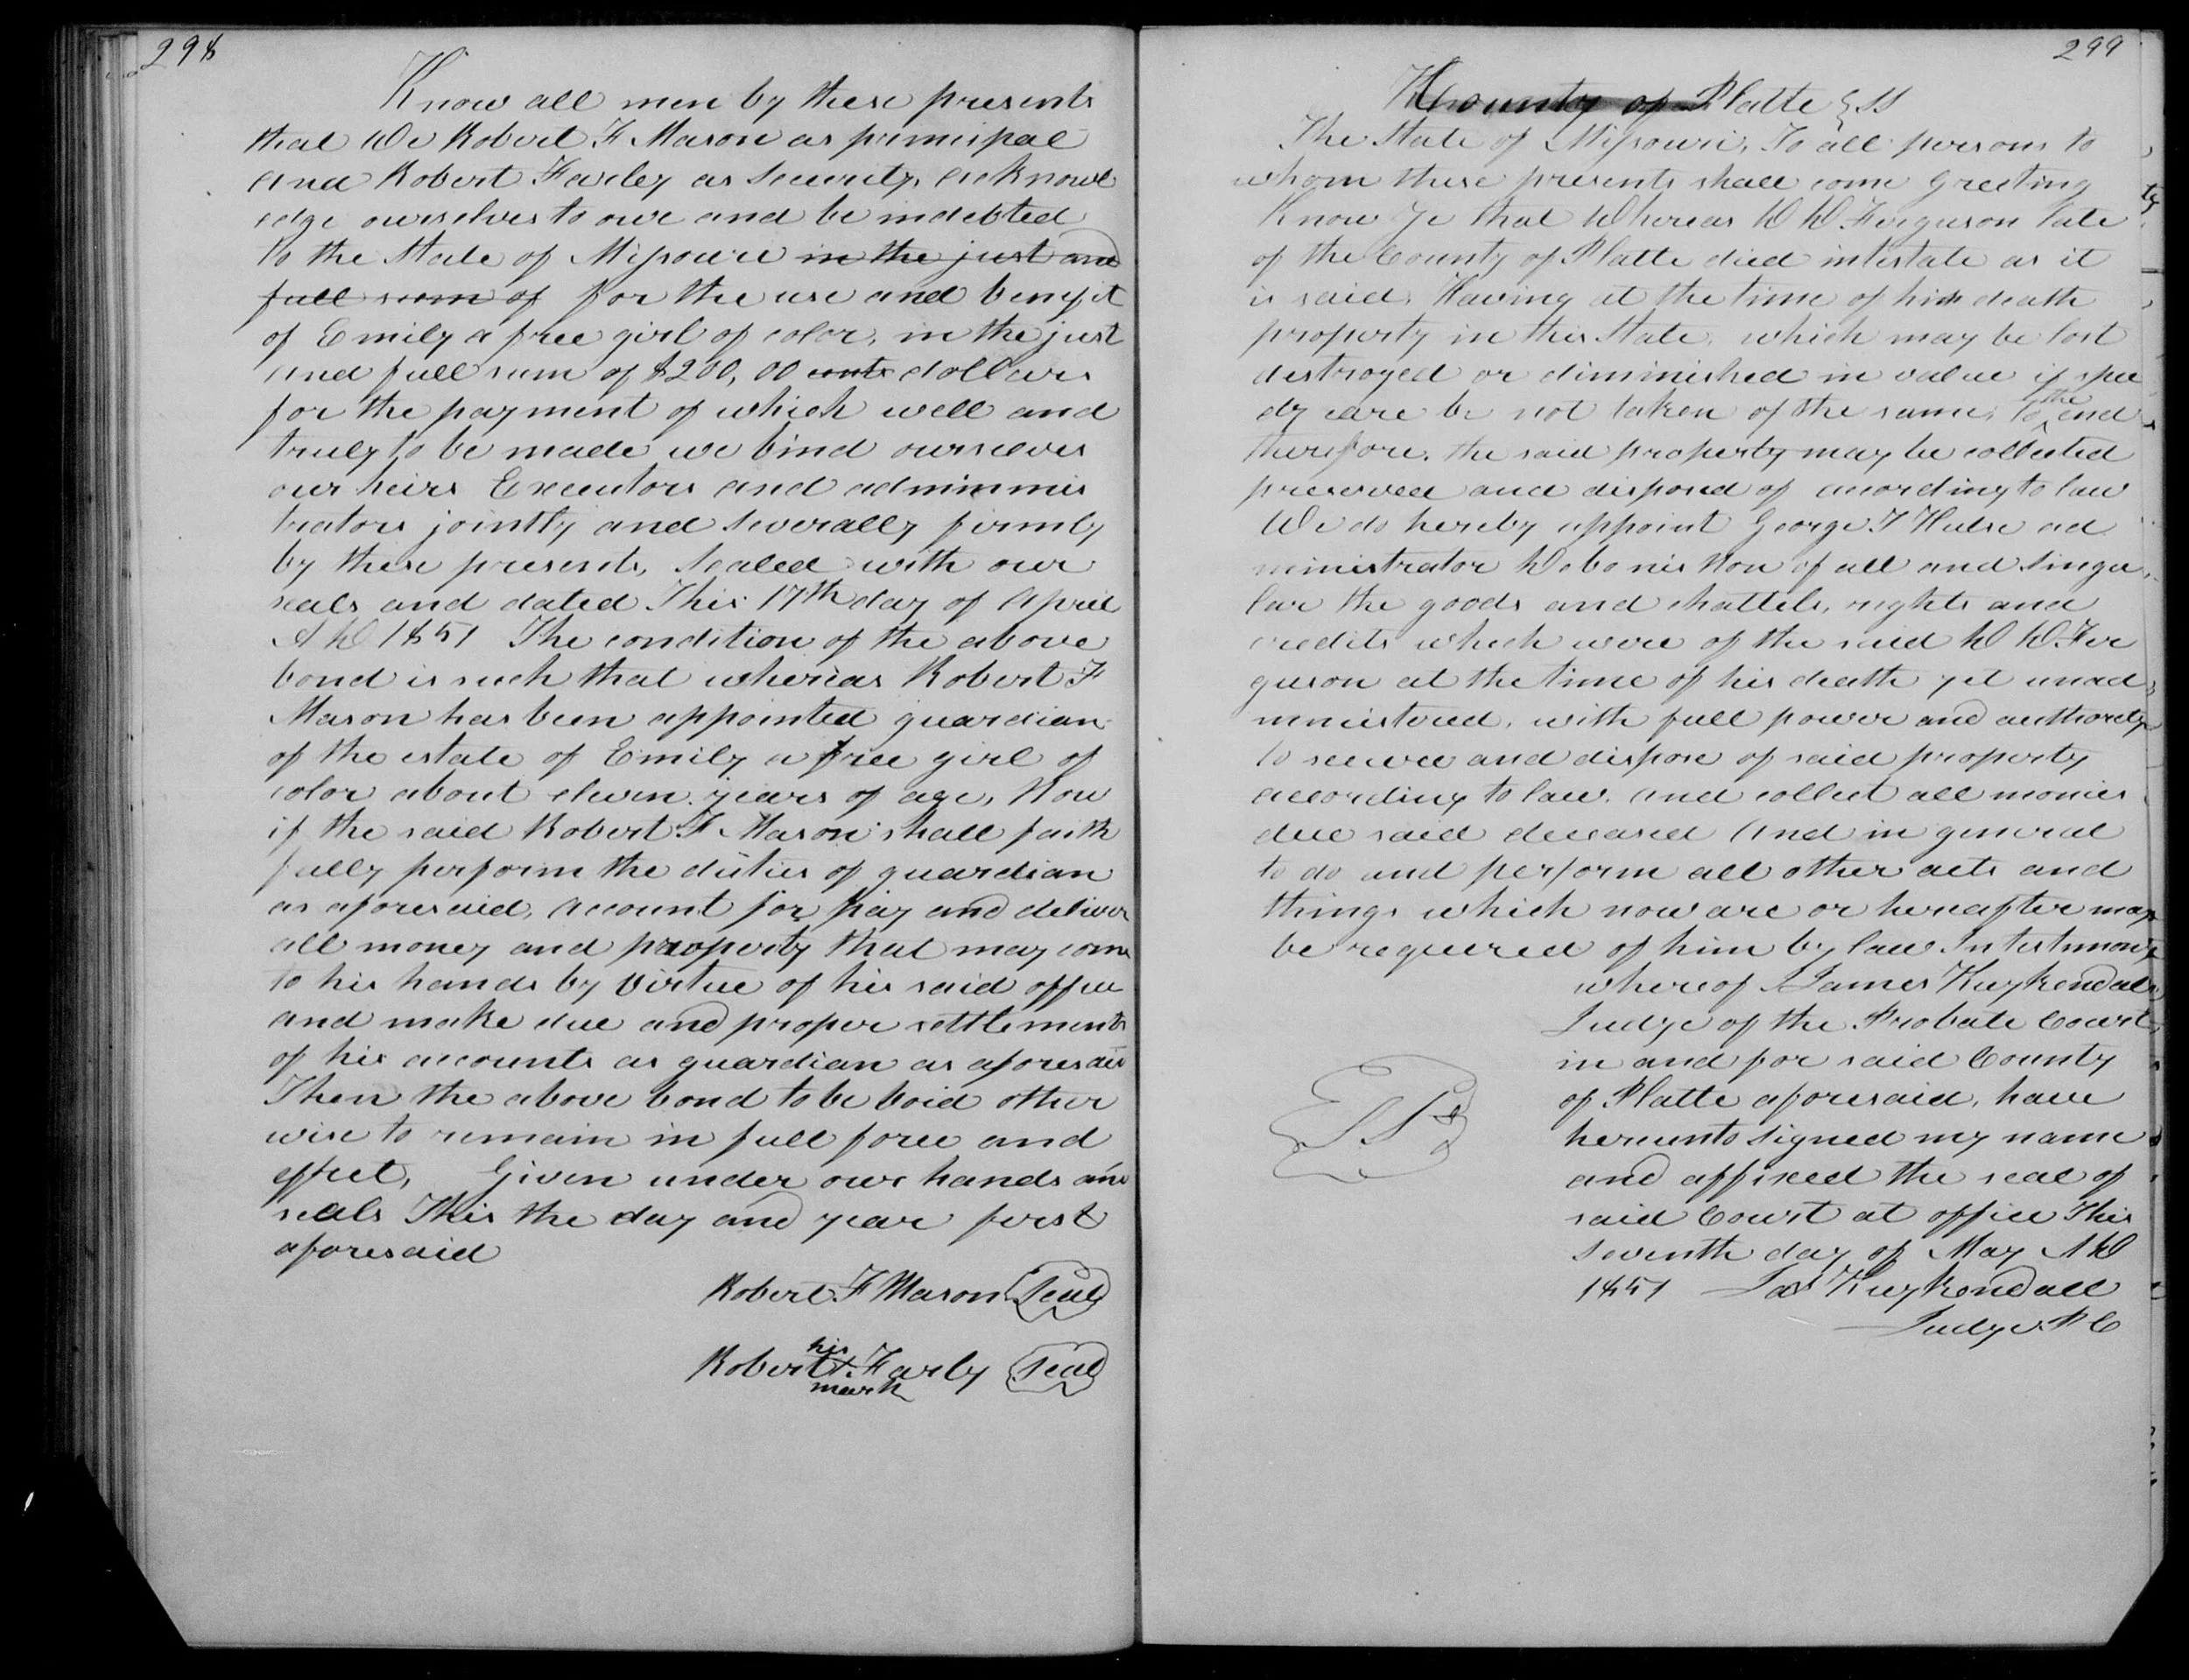 298
Know all men by these presents
that We Robert F Mason as principal
and Robert Farley as security, acknowl
edge ourselves to owe and be indebted
to the State of Missouri in the just and
full sum of for the use and benefit
of Emily a free girl of color, in the just
and full sum of $200,00 cents dollars
for the payment of which well and
truly to be made we bind ourselves
our heirs Executors and admimmis
trators jointly and severally firmly
by these presents, Sealed with our
seals and dated This 17th day of April
A D 1851 The condition of the above
bond is such that whereas Robert F
Mason has been appointed guardian
of the estate of Emily a free girl of
color about eleven years of age, Now
if the said Robert F Mason shall faith
fully perform the duties of guardian
as aforesaid, account for pay and deliver
all money and property that may come
to his hands by virtue of his said office
and make due and proper settlements
of his accounts as guardian as aforesaid
Then the above bond to be void other
wise to remain in full force and
effect, Given under our hands and
seals This the day and year first
aforesaid
Robert F Mason Seal
his
Robert X Farly Seal
mark
299
County of Platte } SS
The State of Missouri, To all persons to
whom these presents shall come Greeting
Know Ye that Whereas D D Ferguson late
of the County of Platte died intestate as it
is said, Having at the time of his death
property in this State, which may be lost
destroyed or diminished in value if spee
dy care be not taken of the same, to the end
therefore, the said property may be collected
preserved and disposed of according to law
We do hereby appoint George T Hulse ad
ministrator De bonis Non of all and singu
lar the goods and chattels, rights and
credits which were of the said D D Fer
guson at the time of his death yet unad
ministered, with full power and authority
to secure and dispose of said property
according to law, and collect all monies
due said deceased And in general
to do and perform all other acts and
things which now are or hereafter may
be required of him by law In testimony
whereof I James Kuykendall
Judge of the Probate Court
in and for said County
of Platte aforesaid, have
hereunto signed my name
and affixed the seal of
said Court at office This
seventh day of May A D
1851 Jas Kuykendall
Judge P C